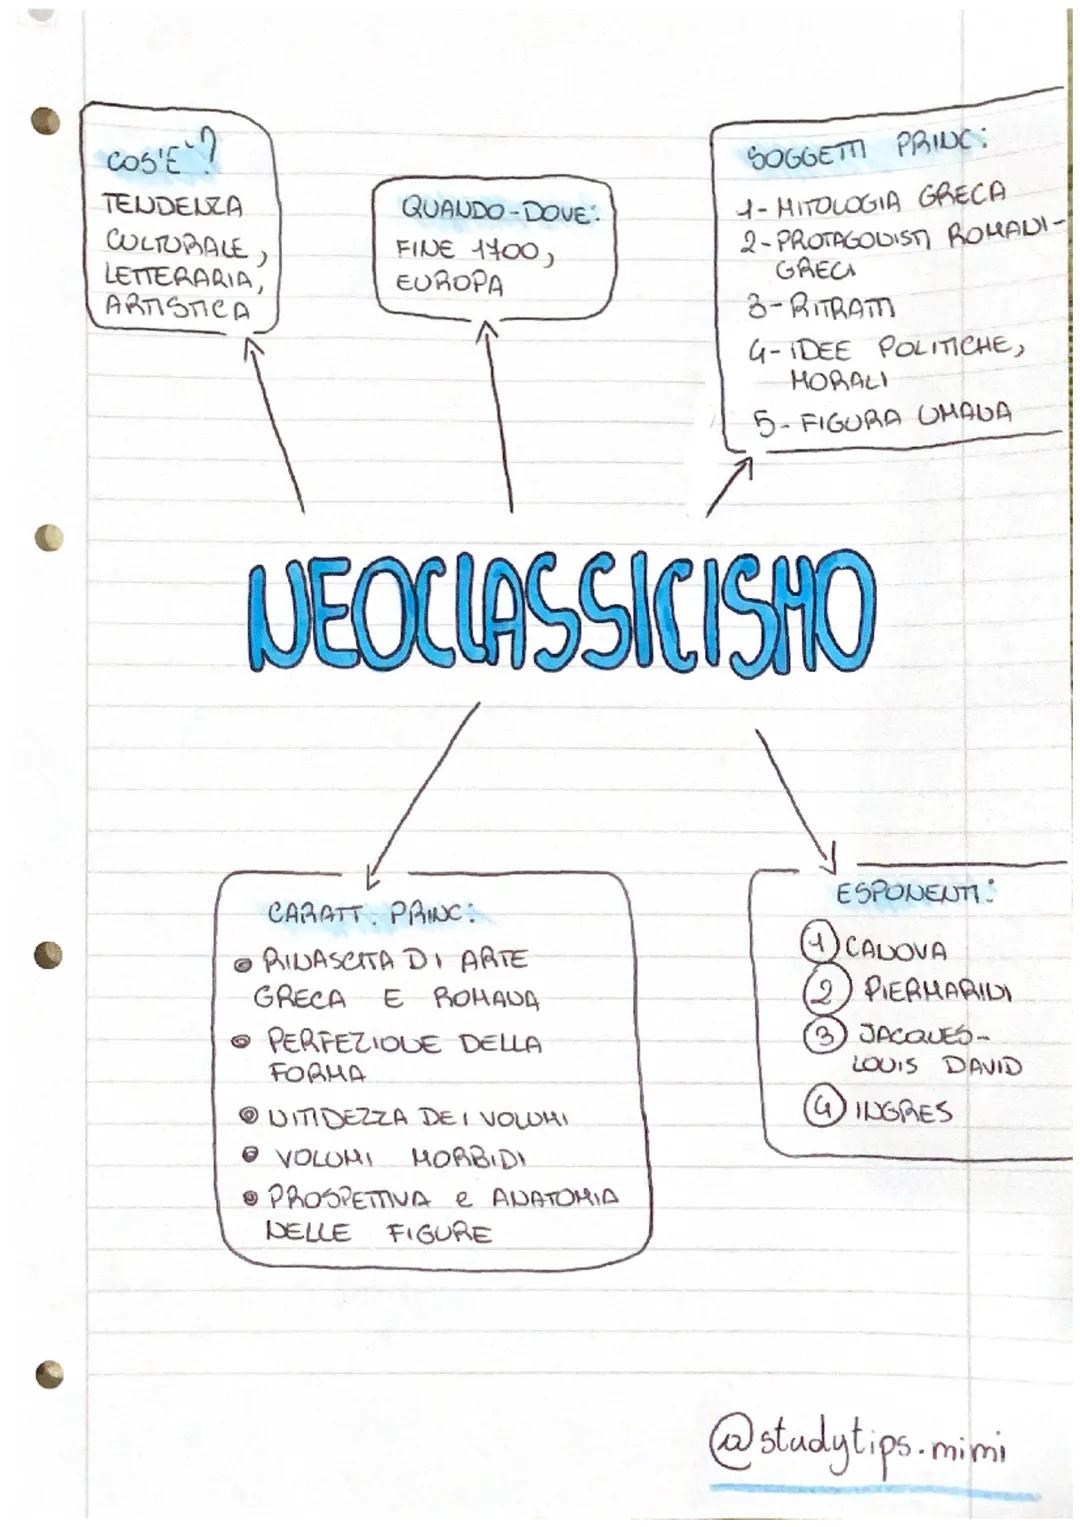 COS'È?
TENDENZA
CULTURALE,
LETTERARIA,
ARTISTICA
QUANDO-DOVE:
FINE 1700,
EUROPA
SOGGETTI PRINC:
1- MITOLOGIA GRECA
2- PROTAGONISTI ROMANI-
GRECI
3- RITRATTI
4- IDEE POLITICHE,
MORALI
5- FIGURA UMANA
NEOCLASSICISMO
CARATT. PRINC:
RINASCITA DI ARTE
GRECA E ROMANA
PERFEZIONE DELLA
FORMA
NITIDEZZA DEI VOLUMI
VOLUMI MORBIDI
PROSPETTIVA e ANATOMIA
NELLE FIGURE
ESPONENTI:
1 CANOVA
2 PIERMARINI
3 JACQUES-
LOUIS DAVID
4 INGRES
@studytips.mimi